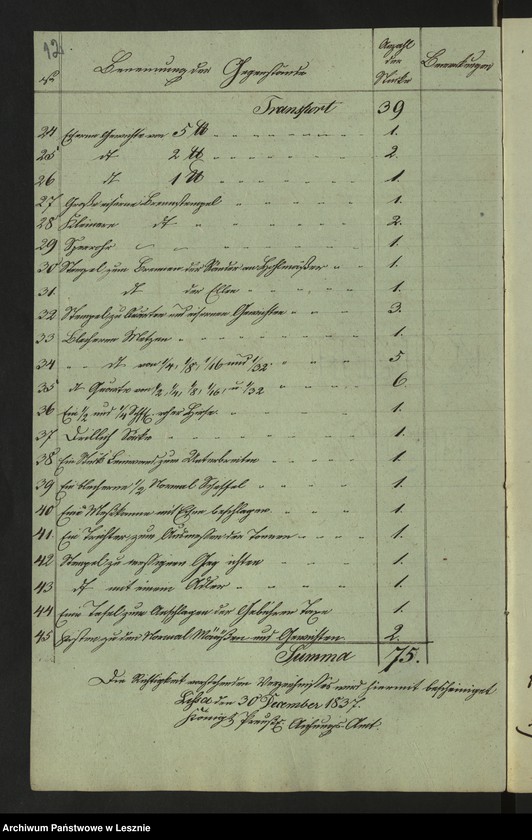 12.
No Benennung der Gegenstände Anzahl der Stücke Bemerkungen
Transport 39
24 Eiserne Gewichte von 5 ℔ 1.
25 dt 2 ℔ 2.
26 dt 1 ℔ 1.
27 Große eiserne Brennstempel 1.
28 Kleinere dt 2.
29 1.
30 Stempel zum Brennen der Ränder an Hohlmaßen 1.
31. dt der Ellen 1.
32 Stempel zu Quarten und eisernen Gewichten 3.
33 Blecherne Metzen 1.
34 dt von 1/4, 1/8, 1/16 und 1/32 5
35 dt Quarte von 1/2, 1/4, 1/8, 1/16, u 1/32 6
36 Ein 1/2 und 1/4 1.
37 Drillich Säcke 1.
38 Ein Stück Leinwand zum Unterbreiten 1.
39 Ein blecherne 1/2 Normal Scheffel 1.
40 Eine mit Eisen beschlagen 1.
41. Ein Trichter zum Ausmessen der Tonnen 1.
42 Stempel zu messignen Gewichten 1.
43 dt mit einem Adler 1.
44 Eine Tafel zum Anschlagen der Gebühren Taxe 1.
45 Kasten zu den Normal Maaßen und Gewichten 2.
Summa 75.
Die Richtigkeit vorstehenden Verzeichnisses wird hiermit bescheiniget
Lissa den 30 December 1837.
Königl. Preuß. Aichungs-Amt.
Archiwum Państwowe w Lesznie